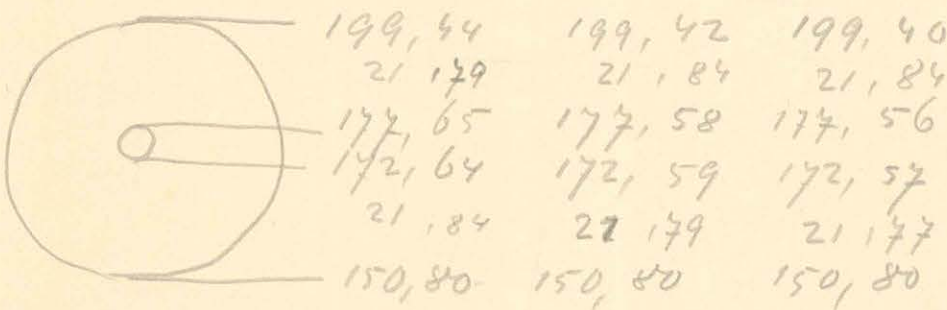 199,44 199,42 199,40
21,79 21,84 21,84
177,65 177,58 177,56
172,64 172,59 172,57
21,84 21,79 21,77
150,80 150,80 150,80